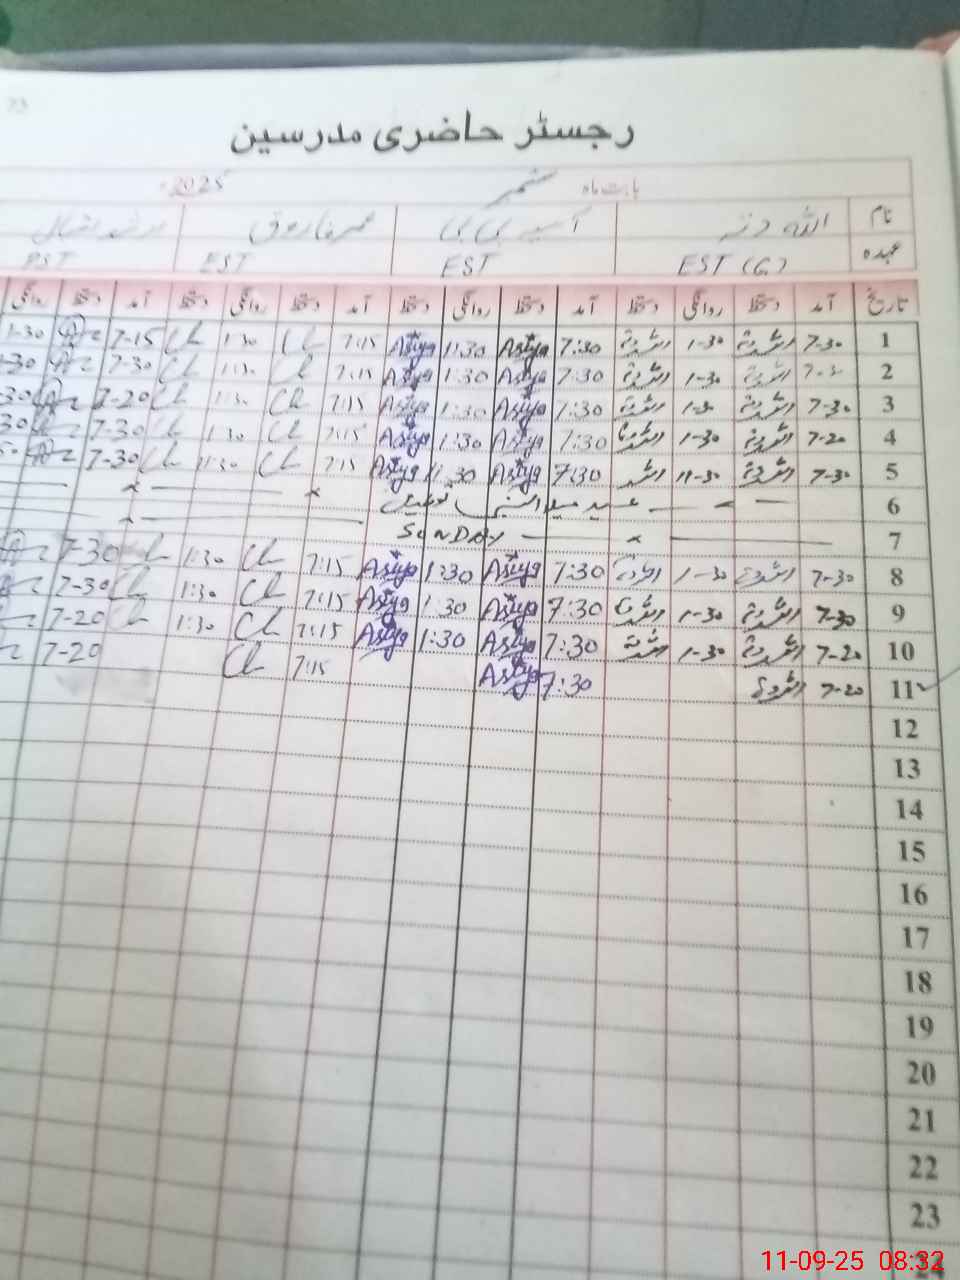 73
رجسٹر حاضری مدرسین
بابت ماہ ستمبر 2025ء
نام اللہ دتہ آسیہ بی بی عمر فاروق
عہدہ EST (G) EST EST PST
تاریخ آمد دستخط روانگی دستخط آمد دستخط روانگی دستخط آمد دستخط روانگی دستخط آمد دستخط روانگی
1 7-30 اللہ دتہ 1-30 اللہ دتہ 7:30 Asiya 1:30 Asiya 7:15 1:30 7-15 1-30
2 اللہ دتہ 1-30 اللہ دتہ 7:30 Asiya 1:30 Asiya 7:15 1:30 7-30 1-30
3 7-30 اللہ دتہ 1-30 اللہ دتہ 7:30 Asiya 1:30 Asiya 7:15 1:30 7-20 30
4 7-20 اللہ دتہ 1-30 اللہ دتہ 7:30 Asiya 1:30 Asiya 7:15 1:30 7-30 30
5 7-30 اللہ دتہ 11-30 اللہ دتہ 7:30 Asiya 11:30 Asiya 7:15 11:30 7-30
6 عید میلاد النبی تعطیل
7 SUNDAY
8 7-30 اللہ دتہ 1-30 اللہ دتہ 7:30 Asiya 1:30 Asiya 7:15 1:30 7-30
9 7-30 اللہ دتہ 1-30 اللہ دتہ 7:30 Asiya 1:30 Asiya 7:15 1:30 7-30
10 7-20 اللہ دتہ 1-30 اللہ دتہ 7:30 Asiya 1:30 Asiya 7:15 1:30 7-20
11 7-20 اللہ دتہ 7:30 Asiya 7:15 7-20
12
13
14
15
16
17
18
19
20
21
22
23
24
11-09-25 08:32